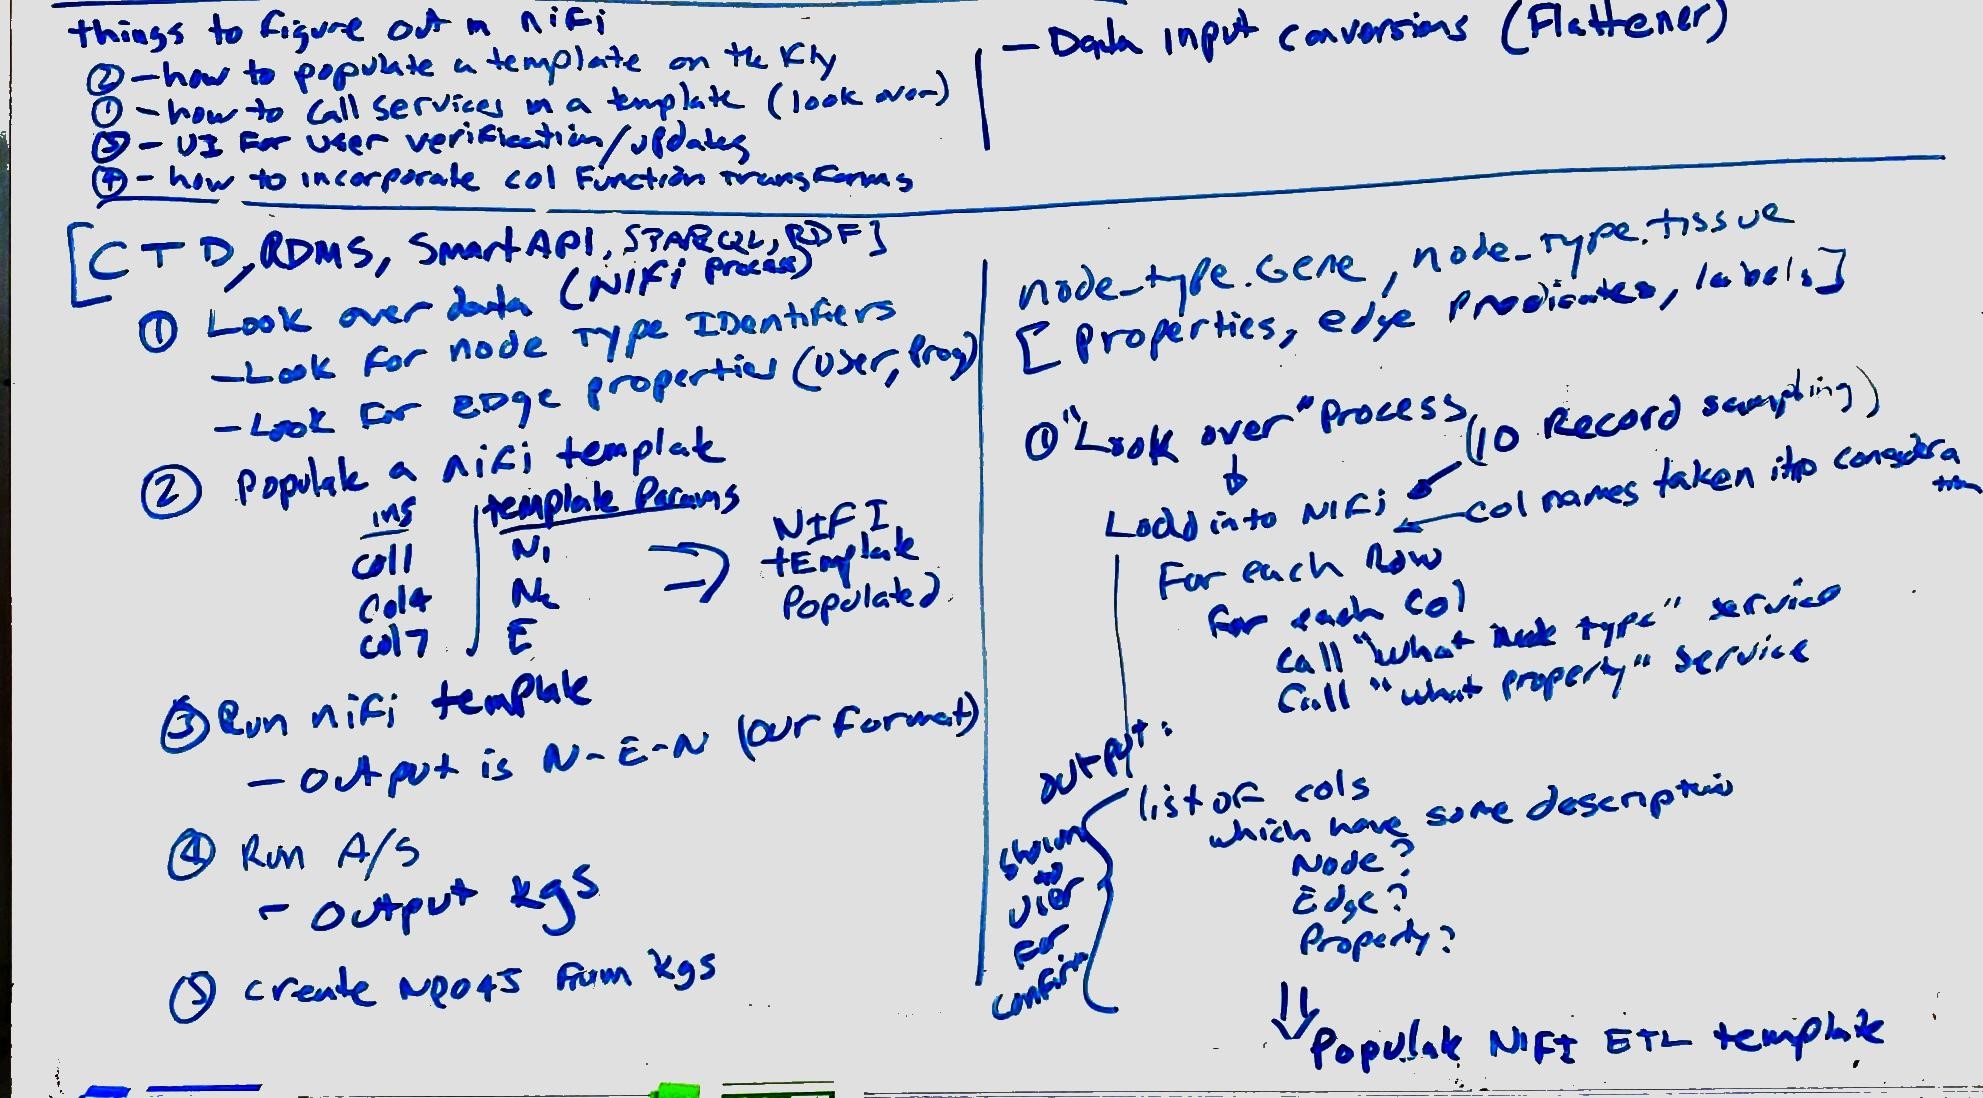 things to figure out in NiFi
② - how to populate a template on the fly
① - how to call services in a template (look over)
③ - UI For user verification/updates
④ - how to incorporate col Function transforms
- Data input conversions (Flattener)
[CTD, RDMS, SmartAPI, SPARQL, RDF]
① Look over data (NIFi process)
- Look for node Type IDentifiers
- Look For edge properties (User, Prog)
② Populate a nifi template
ins
template Params
col1
N1
col4
N2
col7
E
NIFI
tEmplate
Populated
③ Run nifi template
- Output is N-E-N (our format)
④ Run A/S
- Output kgs
⑤ create Neo4J from kgs
node_type.Gene, node_type.tissue
[Properties, edge Predicates, labels]
① "Look over" Process
(10 Record sampling)
Load into NIFi
col names taken into considera
tion
For each Row
For each Col
Call "what node type" service
Call "what property" service
output:
list of cols
which have some description
Node?
Edge?
Property?
shown
to
user
For
confirm
Populate NIFI ETL template